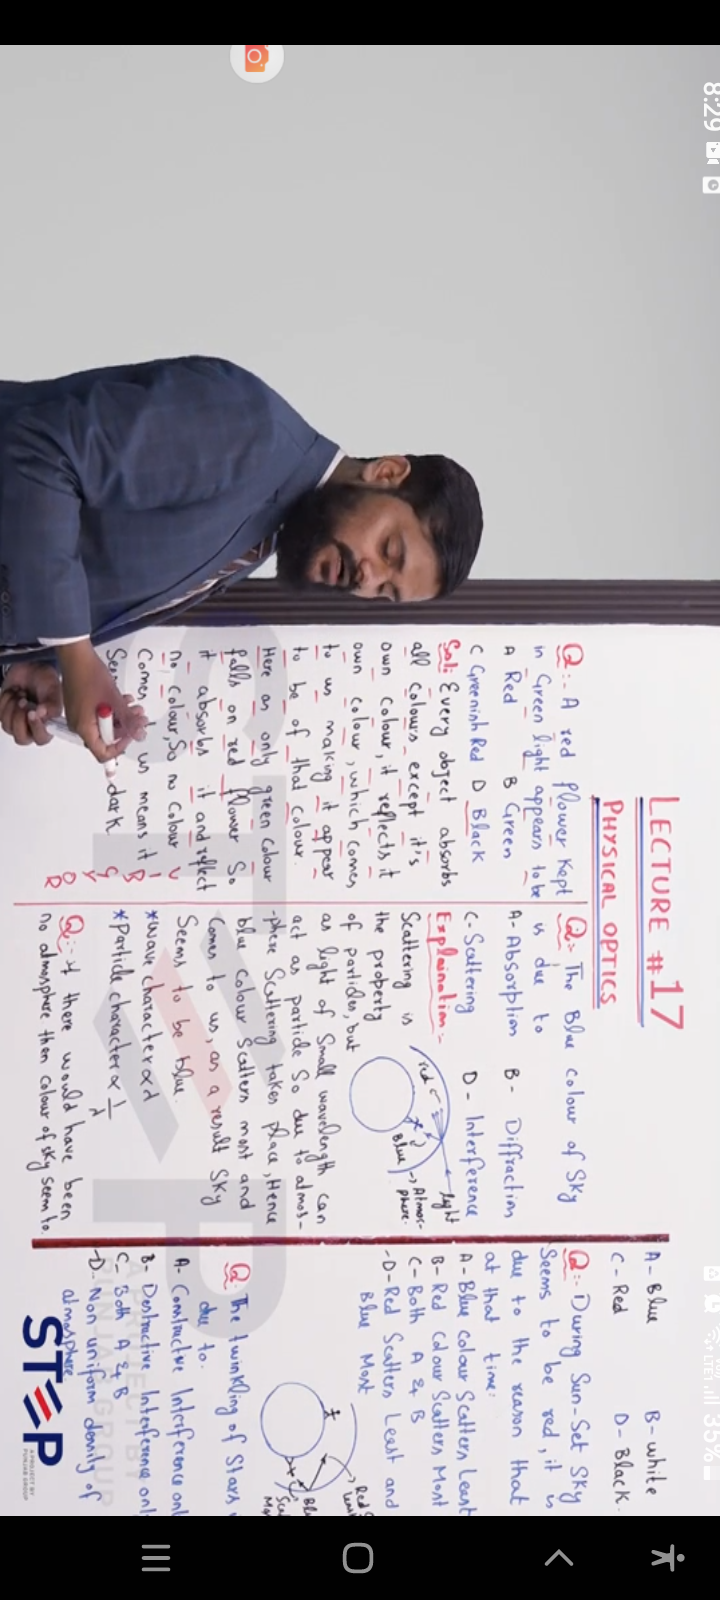 8:29
35%
LECTURE #17
PHYSICAL OPTICS
Q:- A red flower kept
in Green light appears to be
A Red B Green
C Greenish Red D Black
Sol: Every object absorbs
all colours except it's
own colour, it reflects it
own colour, which comes
to us making it appear
to be of that colour.
Here as only green colour
falls on red flower So
it absorbs it and reflect
no colour, So no colour
Comes us means it
dark
V
I
B
G
Y
O
R
Q:- The Blue colour of Sky
is due to
A- Absorption B- Diffraction
C- Scattering D- Interference
Explaination:-
Scattering is
the property
of particles, but
as light of Small wavelength can
act as particle So due to atmos-
-phere Scattering takes place, Hence
blue colour Scatters most and
Comes to us, as a result Sky
Seems to be blue.
*wave character ∝ λ
*Particle character ∝ 1/λ
red
Blue
light
Atmos-
phere.
Q:- if there would have been
no atmosphere then colour of sky seem to.
A- Blue B- white
C- Red D- Black.
Q:- During Sun-Set Sky
Seems to be red, it is
due to the reason that
at that time:
A- Blue colour Scatters Least
B- Red colour Scatters Most
C- Both A & B
-D- Red Scatters Least and
Blue Most
Red
Q. The twinkling of Stars
due to.
A- Constructive Interference
B- Destructive Interference
C- Both A & B
-D- Non uniform density of
atmosphere
STEP
A PROJECT BY
PUNJAB GROUP